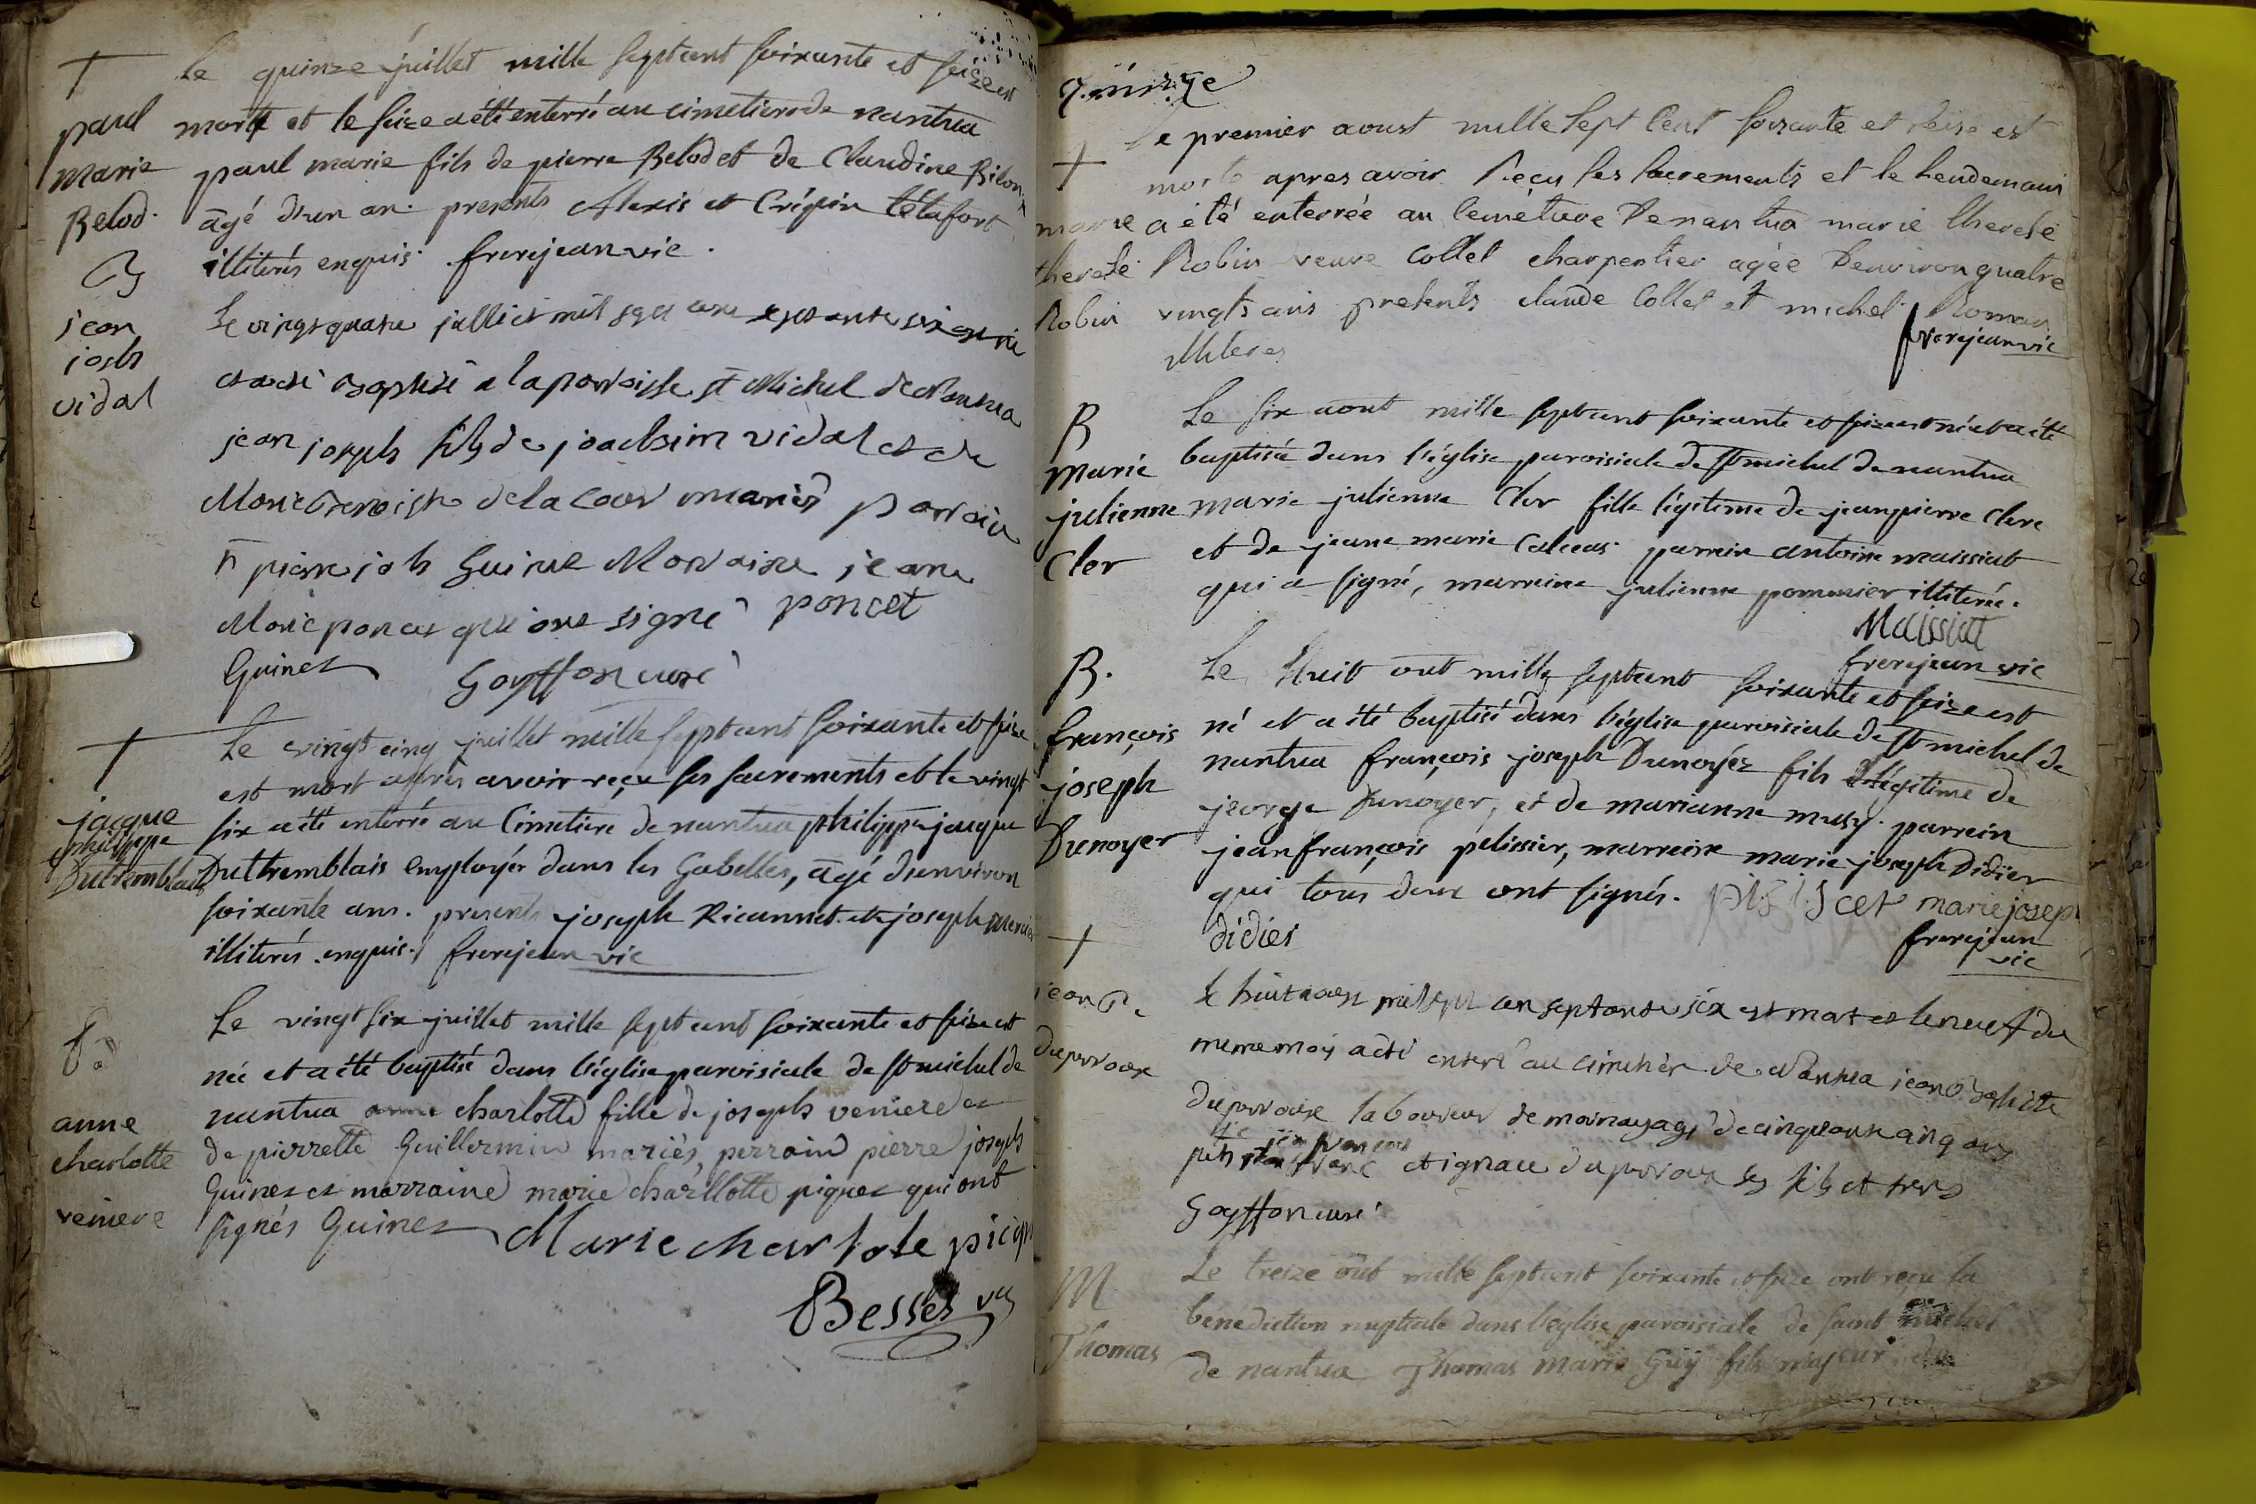 Le quinze juillet mille septcent soixante et seize est
mort et le seize a été enterré au cimetiere de nantua
paul marie fils de pierre Belod et de Claudine
âgé d'un an. presents Alexis et Crépin tétafort
illiterés enquis. frerejean vic.
paul
marie
Belod.
B
jean
josh
vidal
Le vingt quatre julliet mil sept cent septante six est né
et a été baptisé a la parroisse st Michel de Nantua
jean joseph fils de joachim vidal et de
Marie Benoiste de la Cour mariés parrain
pierre josh Guinet Marraine jeane
Marie poncet qui ont signé poncet
Guinet Goyffon curé
jacque
philippe
Dutremblais
Le vingt cinq juillet mille septcent soixante et seize
est mort aprés avoir reçu ses sacrements et le vingt
six a été enterré au Cimetiére de nantua philippe jacque
Duttremblais employér dans les Gabelles, âgé d'environ
soixante ans. presents joseph Ricannet et joseph mercier
illiterés enquis. frerejean vic
B
anne
charlotte
veniere
Le vingt six juillet mille sept cent soixante et seize est
née et a été baptisé dans l'église paroisiale de st michel de
nantua anne charlotte fille de joseph veniere et
de pierrette Guillermin mariés, parrain pierre joseph
Guinet et marraine marie charllotte piquet qui ont
signés Guinet Marie charlote
Besses vic
quinze
Le premier aoust mille sept Cent soixante et seise est
morte apres avoir Reçu ses sacrements et le lendemain
a été enterrée au Ceméture De nantua marie therese
Robin veuve Collet charpentier agée D'environ quatre
vingts ans presents claude Collet et michel Roman
illiteres frerejean vic
marie
therese
Robin
B
marie
julienne
Cler
Le six aout mille septcent soixante et seize est né et a été
baptisée dans l'église paroisiale de st michel de nantua
marie julienne Cler fille légitime de jeanpierre Clerc
et de jeane marie Caleas. parrein antoine maissiat
qui a signé, marreine julienne pommier illiterée.
Maissiat
frerejean vic
B.
françois
joseph
Dunoyer
Le huit out mille septcent soixante et seize est
né et a été baptisé dans l'église paroisiale de st michel de
nantua françois joseph Dunoyér fils légitime de
jeorge Dunoyer, et de marianne musy. parrein
jean françois pélissier, marreine marie joseph Didier
qui tous deux ont signés. marie joseph
didier frerejean
vic
jean B
Le huit aout mil sept cen septante six est mort et le neuf du
meme mois a été enteré au cimetier de Nantua jean Batiste
laboureur de de cinquante cinq ans
et ignace ses fils et
Goyffon curé
M
Thomas
Le treize oût mille septcent soixante et seize ont reçu la
benediction nuptiale dans l'église paroisiale de saint michel
de nantua Thomas marie Guÿ fils majeur de